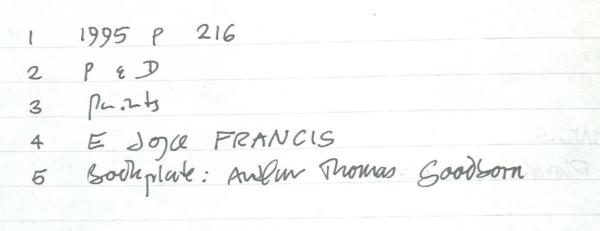 1 1995 P 216
2 P & D
3 Prints
4 E Joyce FRANCIS
5 Bookplate: Arthur Thomas Goodborn